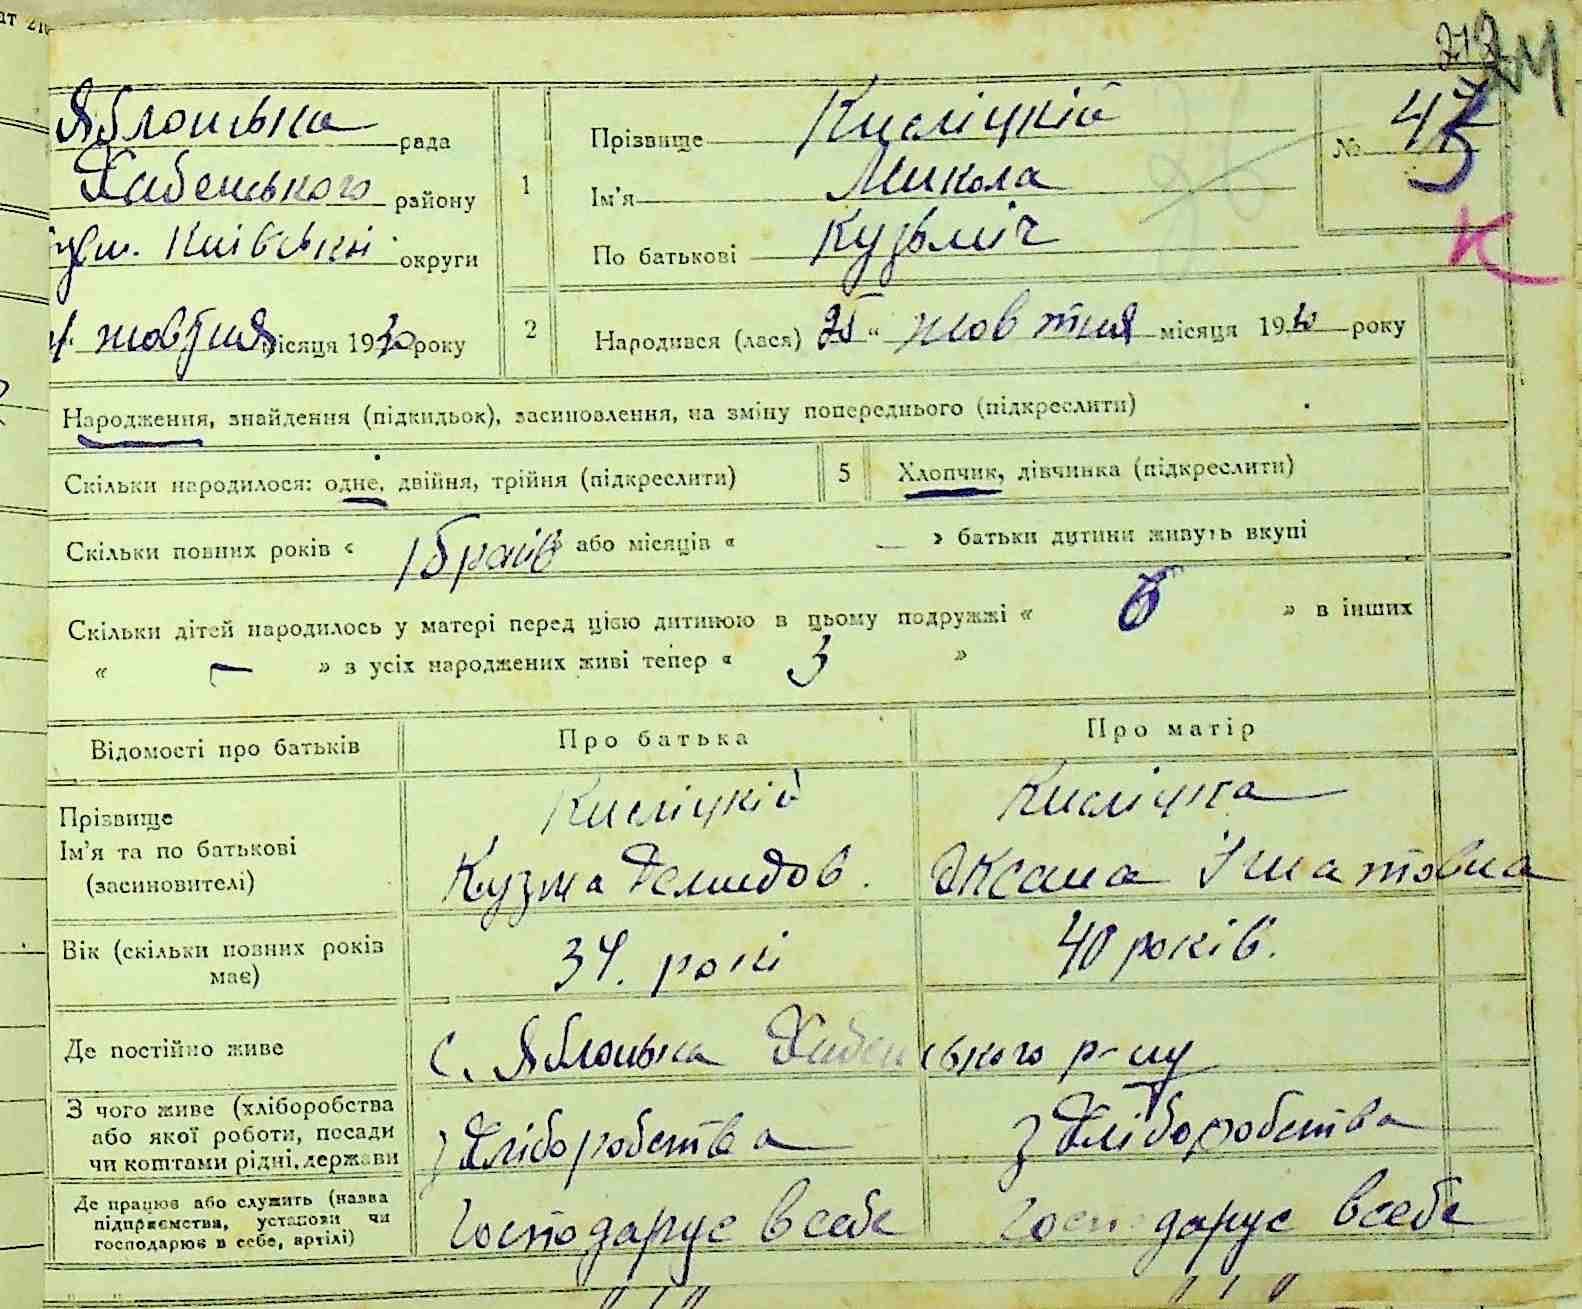 212
Яблонська рада
Хабенського району
Київські округи
жовтня місяця 1930 року
1
Прізвище Кисліцкій
Ім'я Микола
По батькові Кузьміч
№ 47
К
2
Народився (лася) 25 " жовтня місяця 1930 року
Народження, знайдення (підкидьок), засиновлення, на зміну попереднього (підкреслити)
Скільки народилося: одне, двійня, трійня (підкреслити)
5
Хлопчик, дівчинка (підкреслити)
Скільки повних років « 15 років » або місяців « — » батьки дитини живуть вкупі
Скільки дітей народилось у матері перед цією дитиною в цьому подружжі « 6 » в інших
« — » з усіх народжених живі тепер « 3 »
Відомості про батьків
Про батька
Про матір
Прізвище
Ім'я та по батькові
(засиновителі)
Кисліцкій
Кузма Демидов.
Кисліцка
Оксана Ігнатовна
Вік (скільки повних років
має)
34. рокі
40 років.
Де постійно живе
с. Яблонька Хабенського р-ну
З чого живе (хліборобства
або якої роботи, посади
чи коштами рідні, держави
з Хліборобства
з Хліборобства
Де працює або служить (назва
підприємства, установи чи
господарює в себе, артілі)
Господарує в себе
Господарує в себе